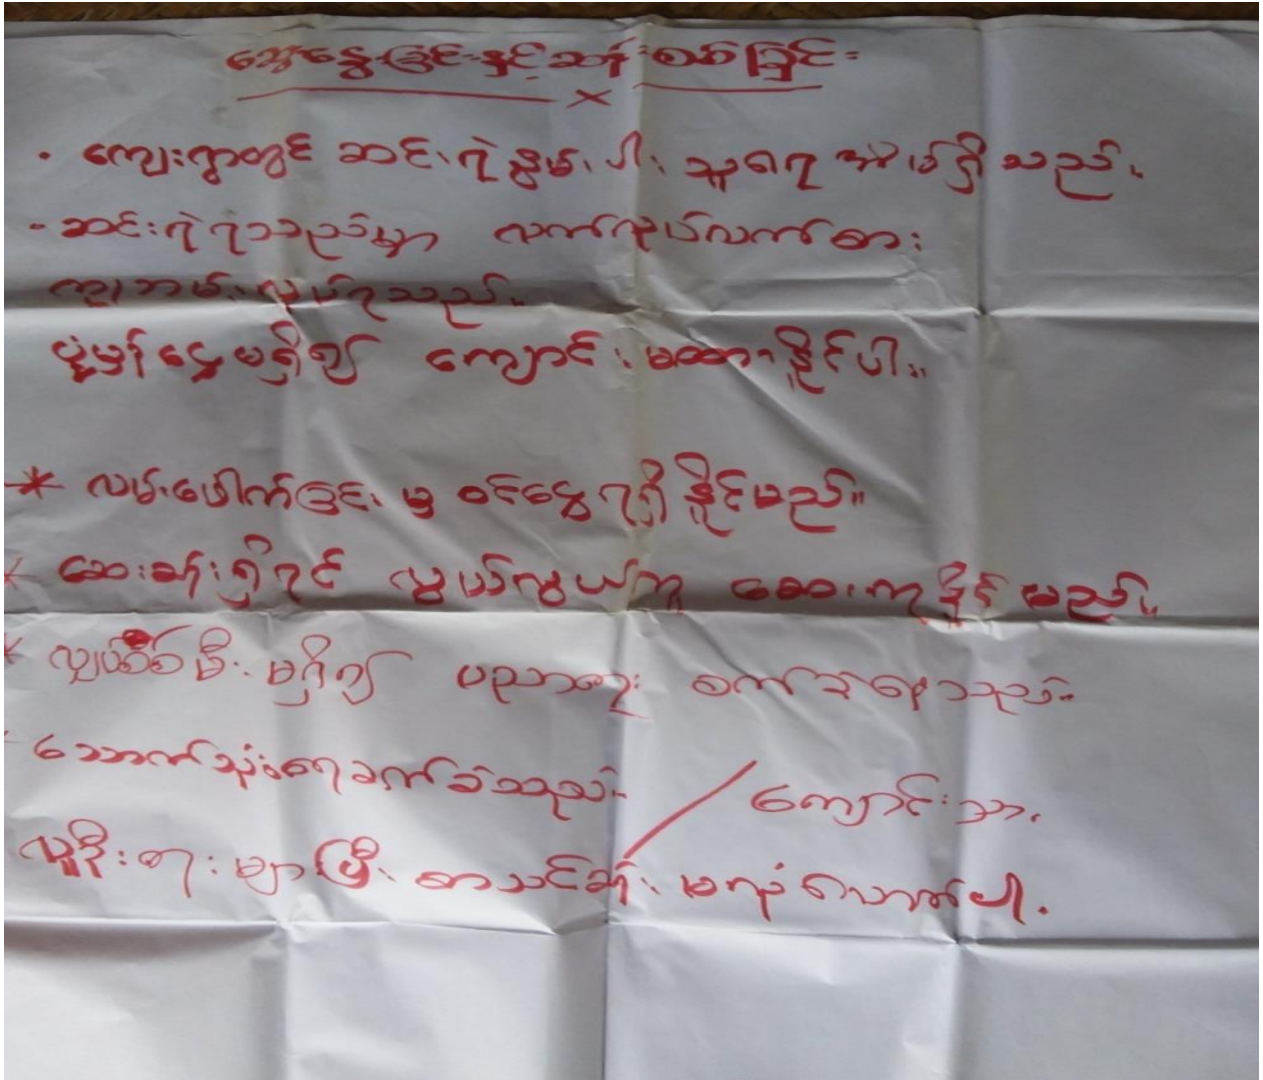 ဆွေးနွေးခြင်းနှင့်ဆန်းစစ်ခြင်း
• ကျေးရွာတွင် ဆင်းရဲနွမ်းပါးသူ ၈၇ အိမ်ရှိသည်။
- ဆင်းရဲရသည်မှာ လက်လုပ်လက်စား
ကျဘမ်းလုပ်ရသည်။
ပုံမှန်ငွေမရှိ၍ ကျောင်းမထားနိုင်ပါ။
* လမ်းဖေါက်ခြင်းမှ ဝင်ငွေရရှိနိုင်မည်။
* ဆေးခန်းရှိရင် လွယ်လွယ်ကူ ဆေးကုနိုင်မည်။
* လျှပ်စစ်မီးမရှိ၍ ပညာရေး ခက်ခဲနေသည်။
- သောက်သုံးရေခက်ခဲသည်။ ကျောင်းသား
လူဦးရေးများပြီး စာသင်ခန်း မလုံလောက်ပါ။